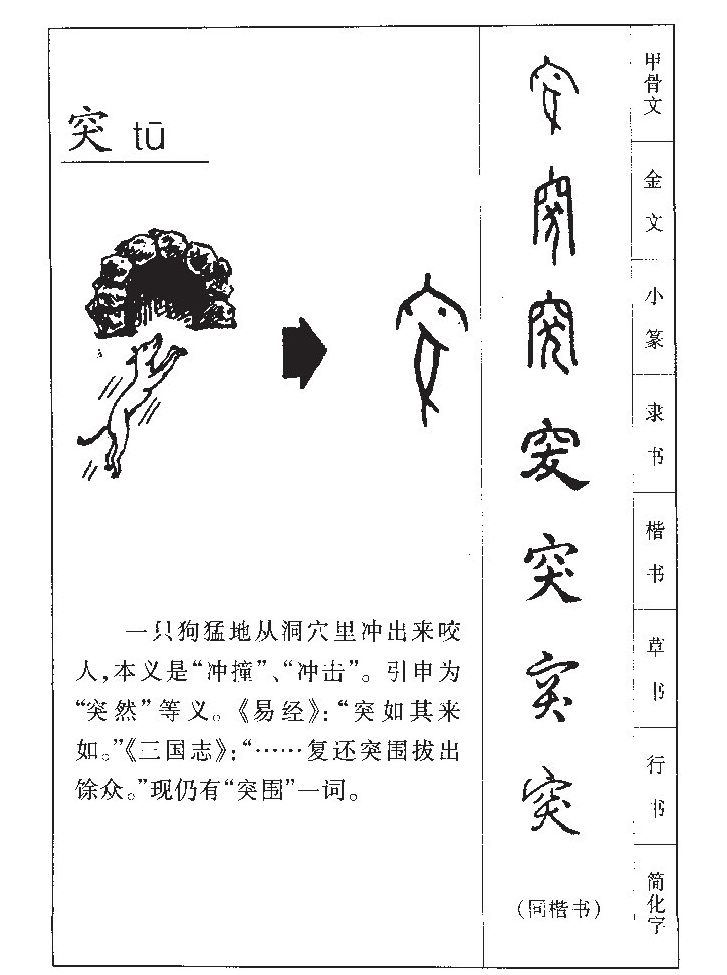 突 tū
一只狗猛地从洞穴里冲出来咬
人,本义是“冲撞”、“冲击”。引申为
“突然”等义。《易经》:“突如其来
如。”《三国志》:“……复还突围拔出
馀众。”现仍有“突围”一词。
突
突
突
突
突
突
突
(同楷书)
甲骨文
金文
小篆
隶书
楷书
草书
行书
简化字